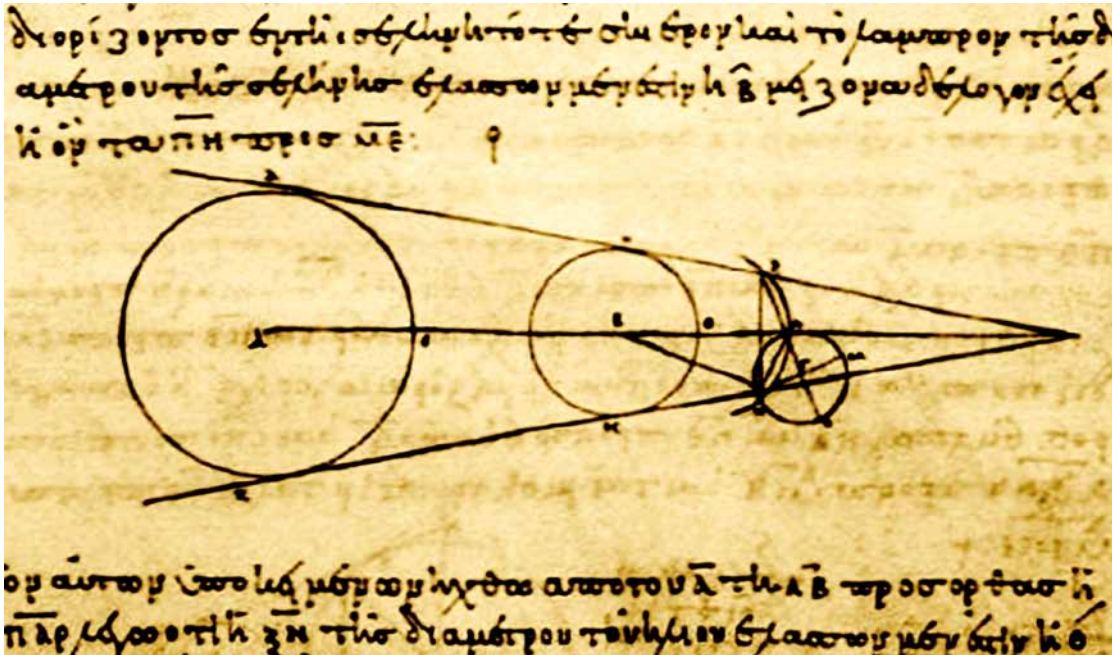 διορίζοντος ἐν τῆι σελήνηι τό τε σκιερὸν καὶ τὸ λαμπρὸν τῆς δ
αμέτρου τῆς σελήνης ἐλάσσων μέν ἐστιν ἢ β̄ μείζονα δὲ λόγον ἔχει
ἢ ὃν τὰ π̄η̄ πρὸς μ̄ε̄:
ων αὐτῶν ὑποκειμένων ἤχθω ἀπὸ τοῦ Ᾱ τῆι Ᾱ Β̄ πρὸς ὀρθὰς ἡ
Π̄Ᾱρ λέγω ὅτι ἡ Ξ̄Ν̄ τῆς διαμέτρου τοῦ ἡλίου ἐλάσσων μέν ἐστιν ἢ θ